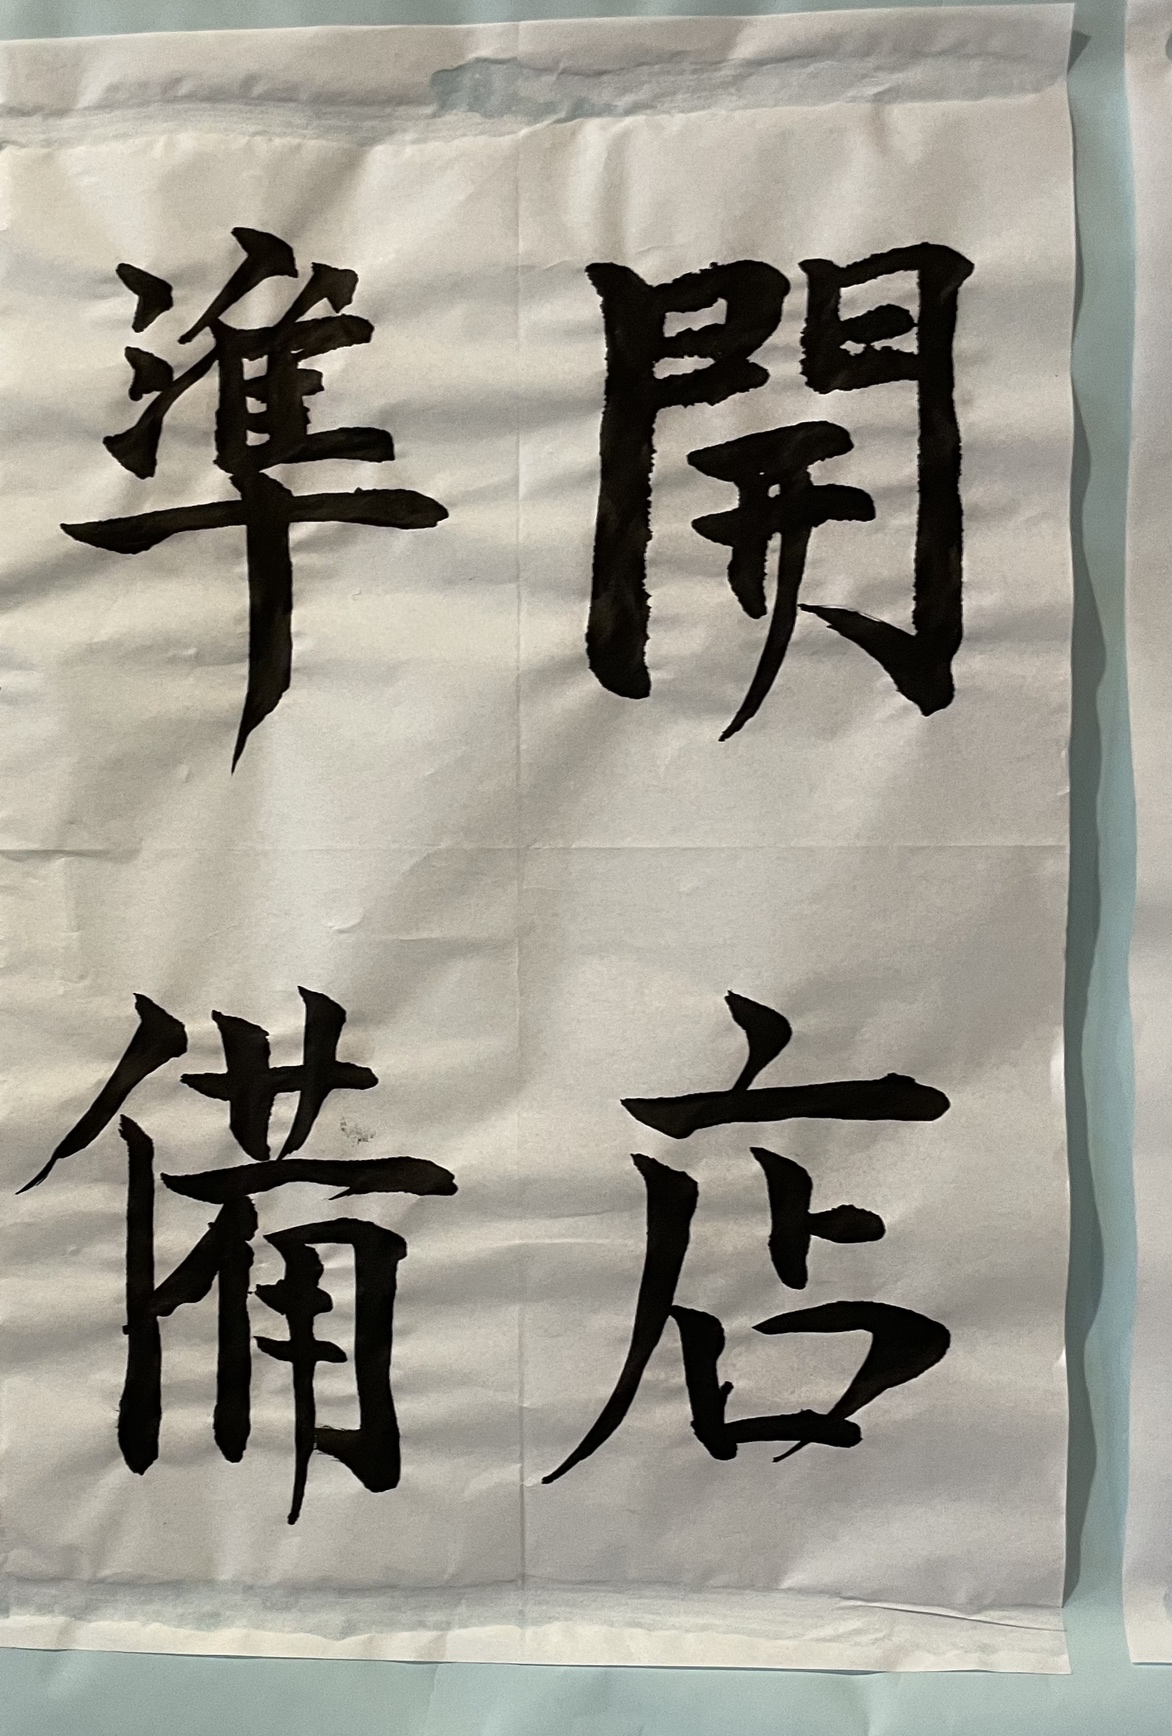 開店
準備